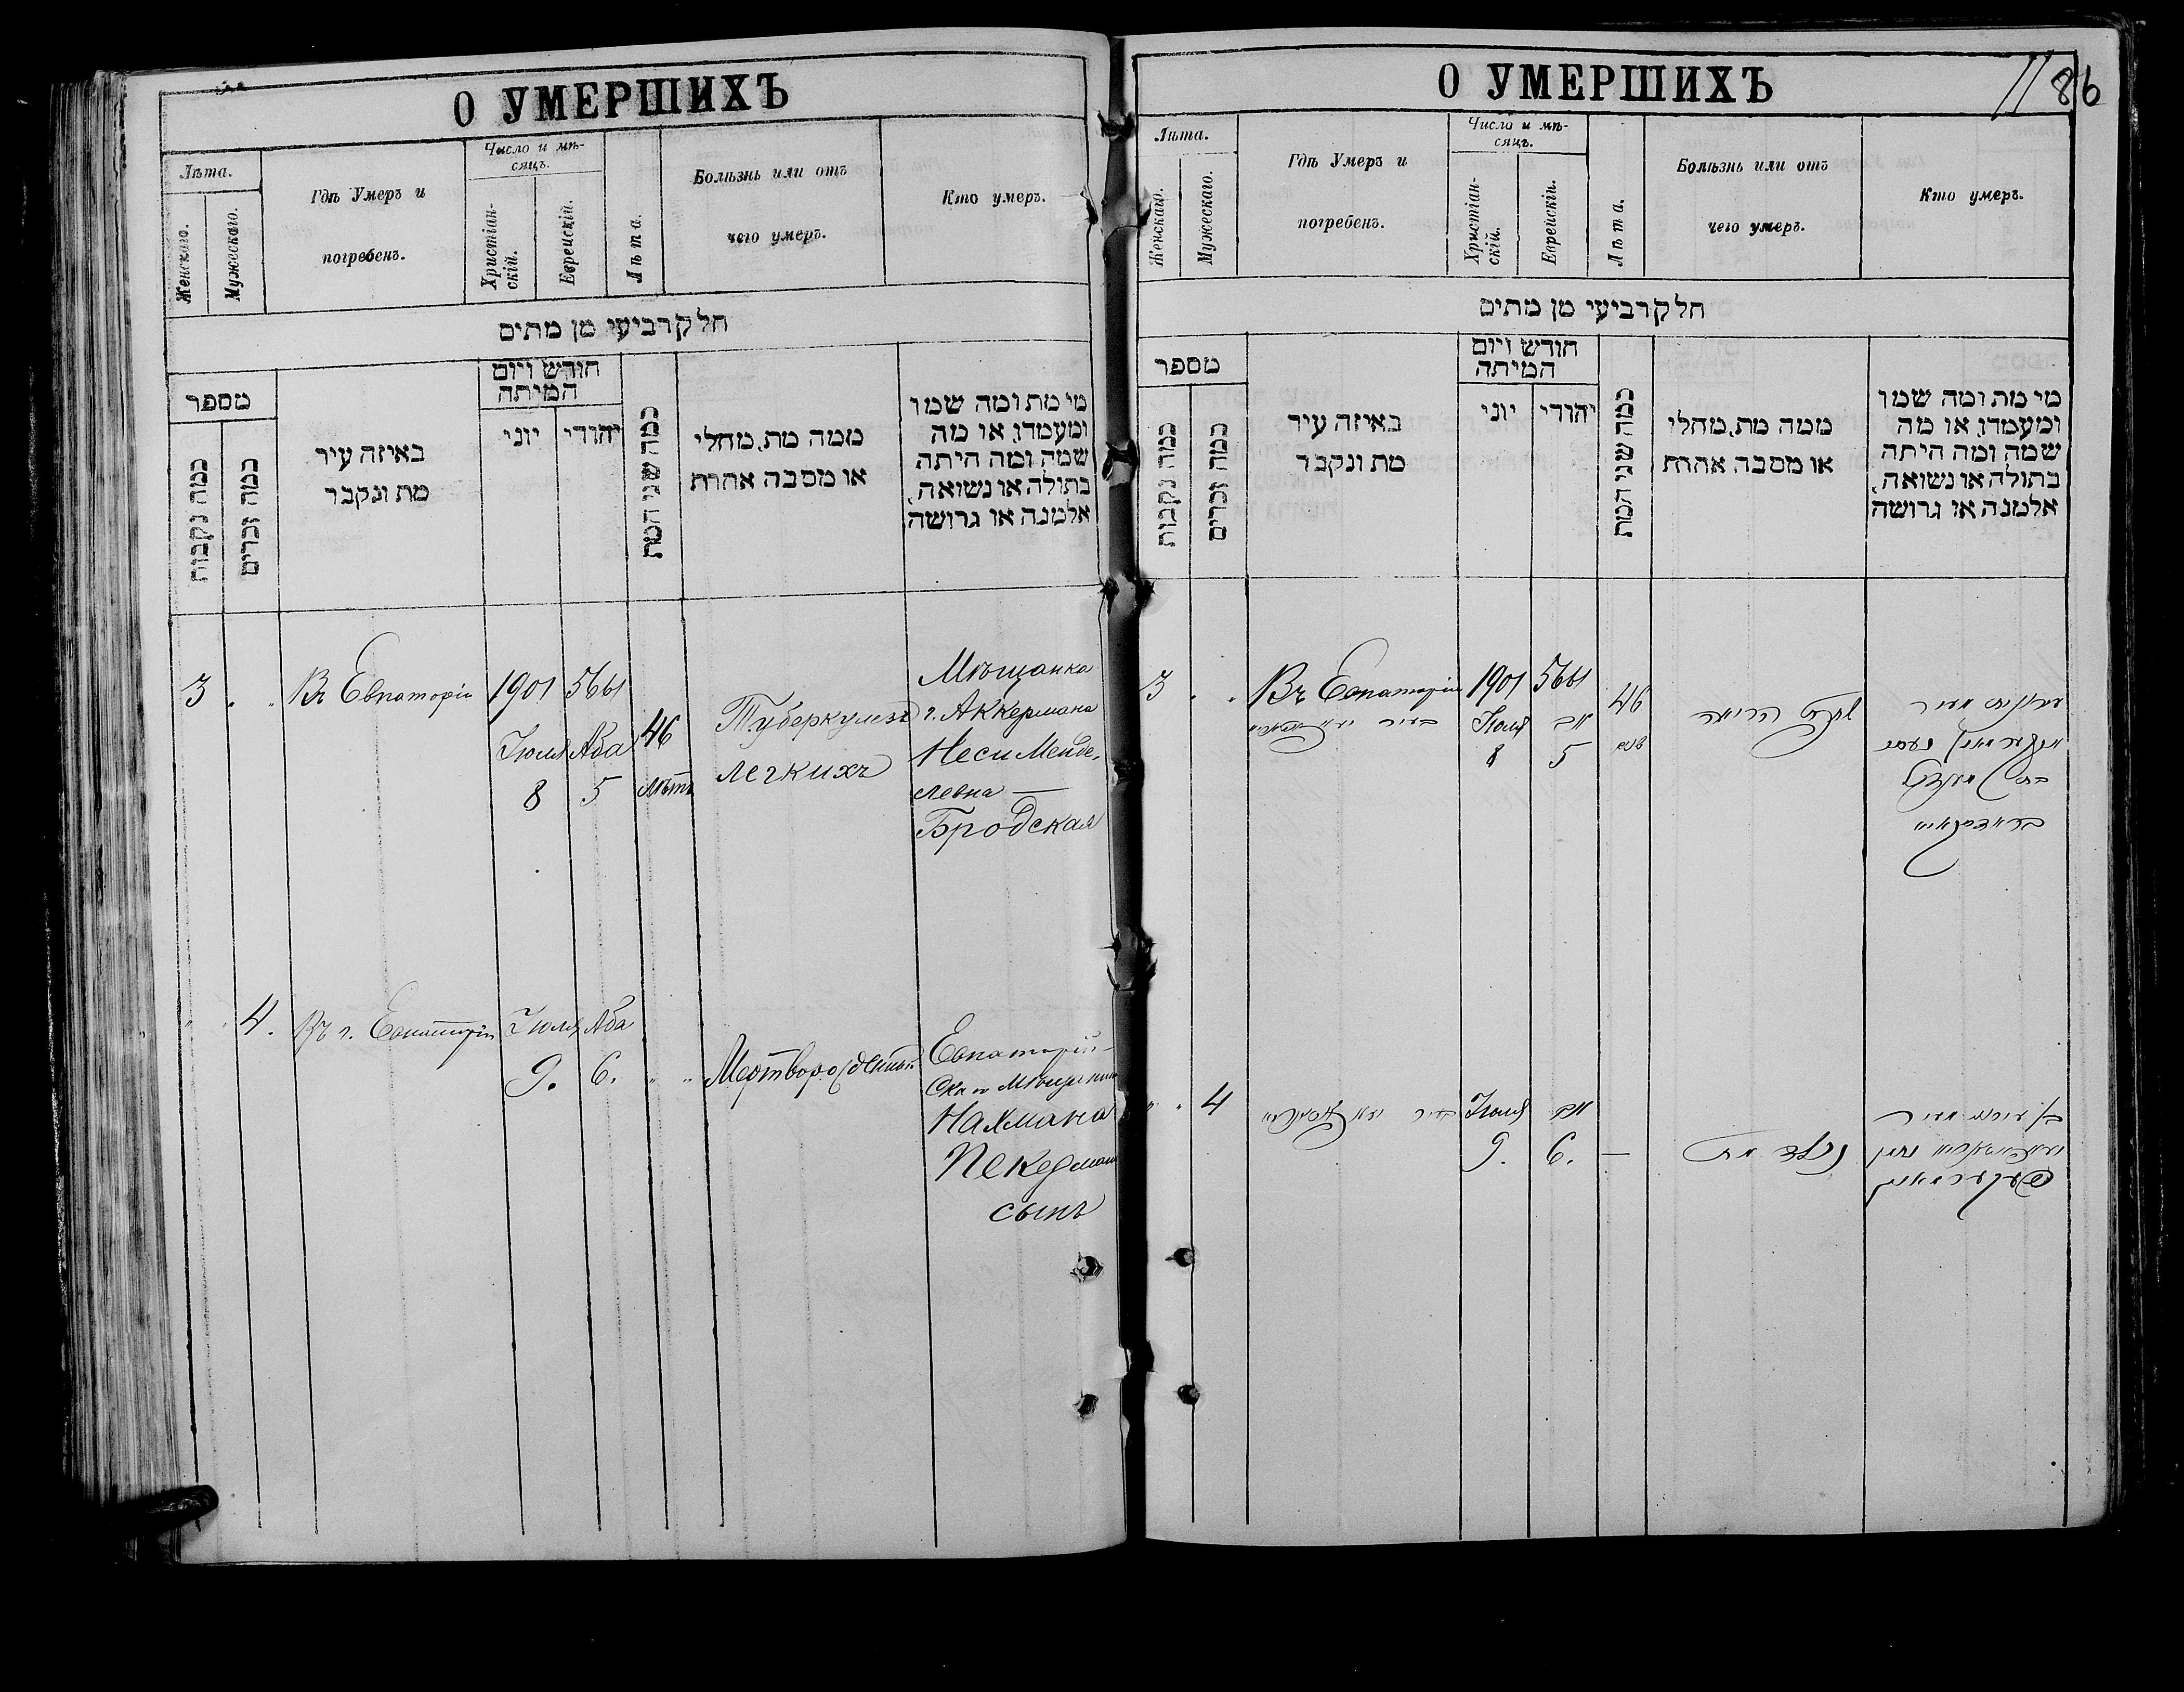 О УМЕРШИХЪ
Лѣта.
Женскаго.
Мужескаго.
Гдѣ Умеръ и
погребенъ.
Число и мѣ-
сяцъ.
Христіан-
скій.
Еврейскій.
Лѣта.
Болѣзнь или отъ
чего умеръ.
Кто умеръ.
חלק רביעי מן מתים
מספר
כמה נקבות
כמה זכרים
באיזה עיר
מת ונקבר
חודש ויום
המיתה
יוני
יהודי
כמה שני המת
ממה מת, מחלי
או מסבה אחרת
מי מת ומה שמו
ומעמדו, או מה
שמה ומה היתה
בתולה או נשואה,
אלמנה או גרושה
3
Въ Евпаторіи
1901
Іюля
8
5661
Аба
5
46
лѣтъ
Туберкулезъ
легкихъ
Мѣщанка
г. Аккермана
Неси Менде-
левна —
Бродская
4.
Въ г. Евпаторіи
Іюля
9.
Аба
6.
Мертворожденный
Евпаторій-
Нахмана
Пекерман
сынъ
О УМЕРШИХЪ
1186
Лѣта.
Женскаго.
Мужескаго.
Гдѣ Умеръ и
погребенъ.
Число и мѣ-
сяцъ.
Христіан-
скій.
Еврейскій.
Лѣта.
Болѣзнь или отъ
чего умеръ.
Кто умеръ.
חלק רביעי מן מתים
מספר
כמה נקבות
כמה זכרים
באיזה עיר
מת ונקבר
חודש ויום
המיתה
יוני
יהודי
כמה שני המת
ממה מת, מחלי
או מסבה אחרת
מי מת ומה שמו
ומעמדו, או מה
שמה ומה היתה
בתולה או נשואה,
אלמנה או גרושה
3
Въ Евпаторіи
בעיר
1901
Іюля
8
5661
אב
5
46
שנה
שחפת הריאה
4
בעיר
Іюля
9.
אב
6.
—
נולד מת